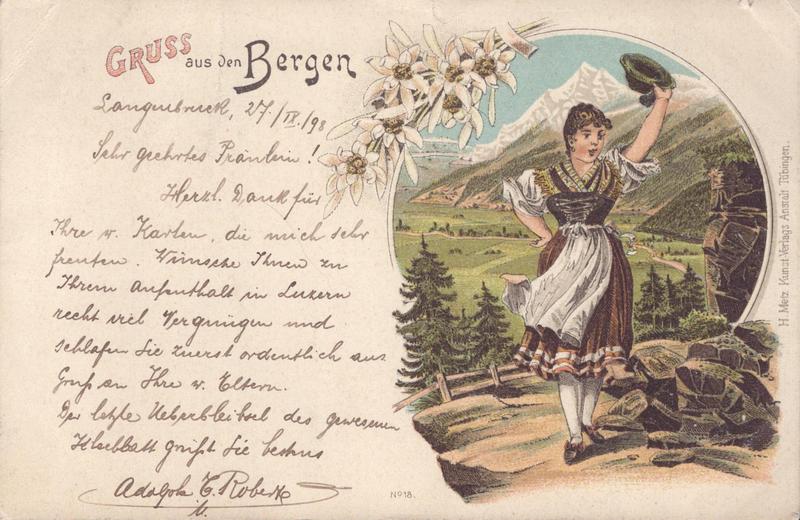 GRUSS aus den Bergen
Langenbruck, 27/IX/98
Sehr geehrtes Fräulein!
Herzl. Dank für
Ihre w. Karten, die mich sehr
freuten. Wünsche Ihnen zu
Ihrem Aufenthalt in Luzern
recht viel Vergnügen und
schlafen Sie zuerst ordentlich aus
Gruß an Ihre w. Eltern.
Der letzte Ueberbleibsel des gewesenen
Kleeblatt grüßt Sie bestens
Adolph Robert
No 18.
H. Metz, Kunst-Verlags-Anstalt Tübingen.